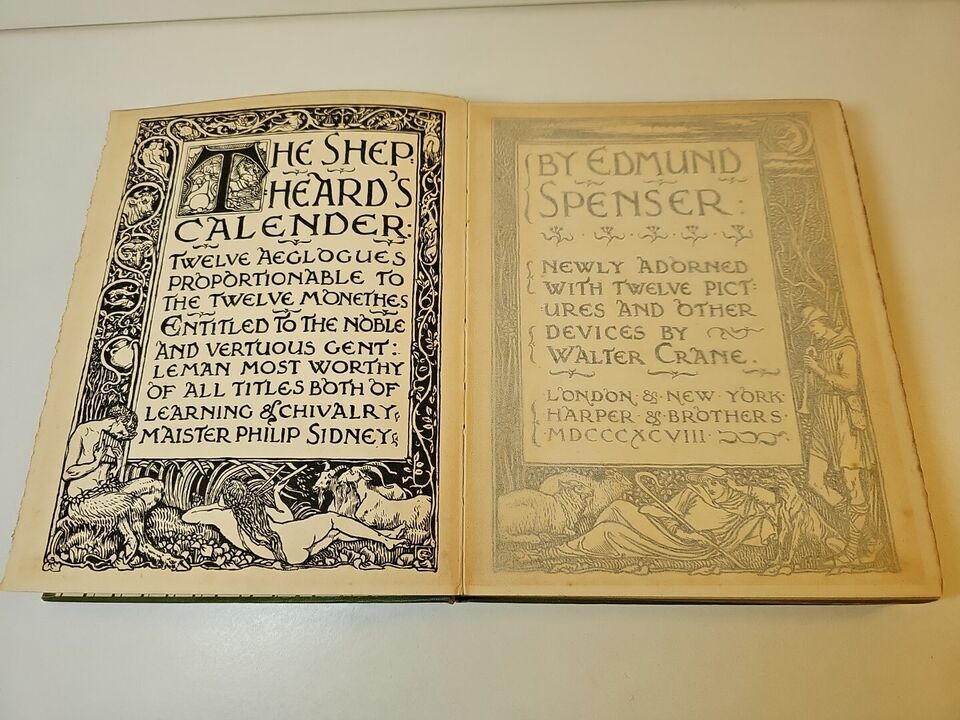 THE SHEP:
HEARD'S
CALENDER:
TWELVE AEGLOGUES
PROPORTIONABLE TO
THE TWELVE MONETHES
ENTITLED TO THE NOBLE
AND VERTUOUS GENT:
LEMAN MOST WORTHY
OF ALL TITLES BOTH OF
LEARNING & CHIVALRY,
MAISTER PHILIP SIDNEY
BY EDMUND
SPENSER:
NEWLY ADORNED
WITH TWELVE PICT
URES AND OTHER
DEVICES BY
WALTER CRANE.
LONDON & NEW YORK
HARPER & BROTHERS
MDCCCXCVIII